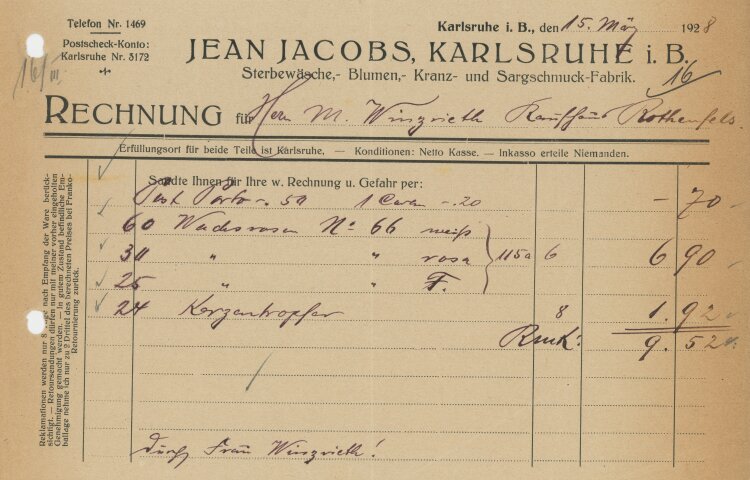 Telefon Nr. 1469
Postscheck-Konto:
Karlsruhe Nr. 3172
16/III.
Karlsruhe i. B., den 15. März 1928
JEAN JACOBS, KARLSRUHE i. B.
Sterbewäsche,- Blumen,- Kranz- und Sargschmuck-Fabrik.
16
RECHNUNG für Herrn M. Winzrieth Kaufhaus Rothenfels.
Erfüllungsort für beide Teile ist Karlsruhe. — Konditionen: Netto Kasse. — Inkasso erteile Niemanden.
Sandte Ihnen für Ihre w. Rechnung u. Gefahr per:
Post Porto -. 50 1 -. 20 - 70 -
60 Wachsrosen No 66 weiß
30 " " rosa 115 a 6 6 90 -
25 " " F.
24 Kerzentropfer 8 1. 92
Rmk: 9. 52
durch Frau Winzrieth!
Reklamationen werden nur 8 Tage nach Empfang der Ware berück-
sichtigt. — Retoursendungen dürfen nur mit meiner vorher eingeholten
Genehmigung gemacht werden. — In gutem Zustand befindliche Em-
ballage nehme ich nur zu 2 Drittel des berechneten Preises bei Franko-
Retournierung zurück.